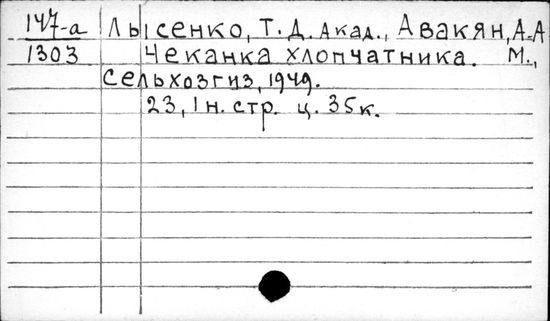 147-а Лысенко, Т. Д. Акад., Авакян, А.А
1303 Чеканка хлопчатника. М.,
сельхозгиз, 1949.
23, 1 н. стр. ц. 35к.